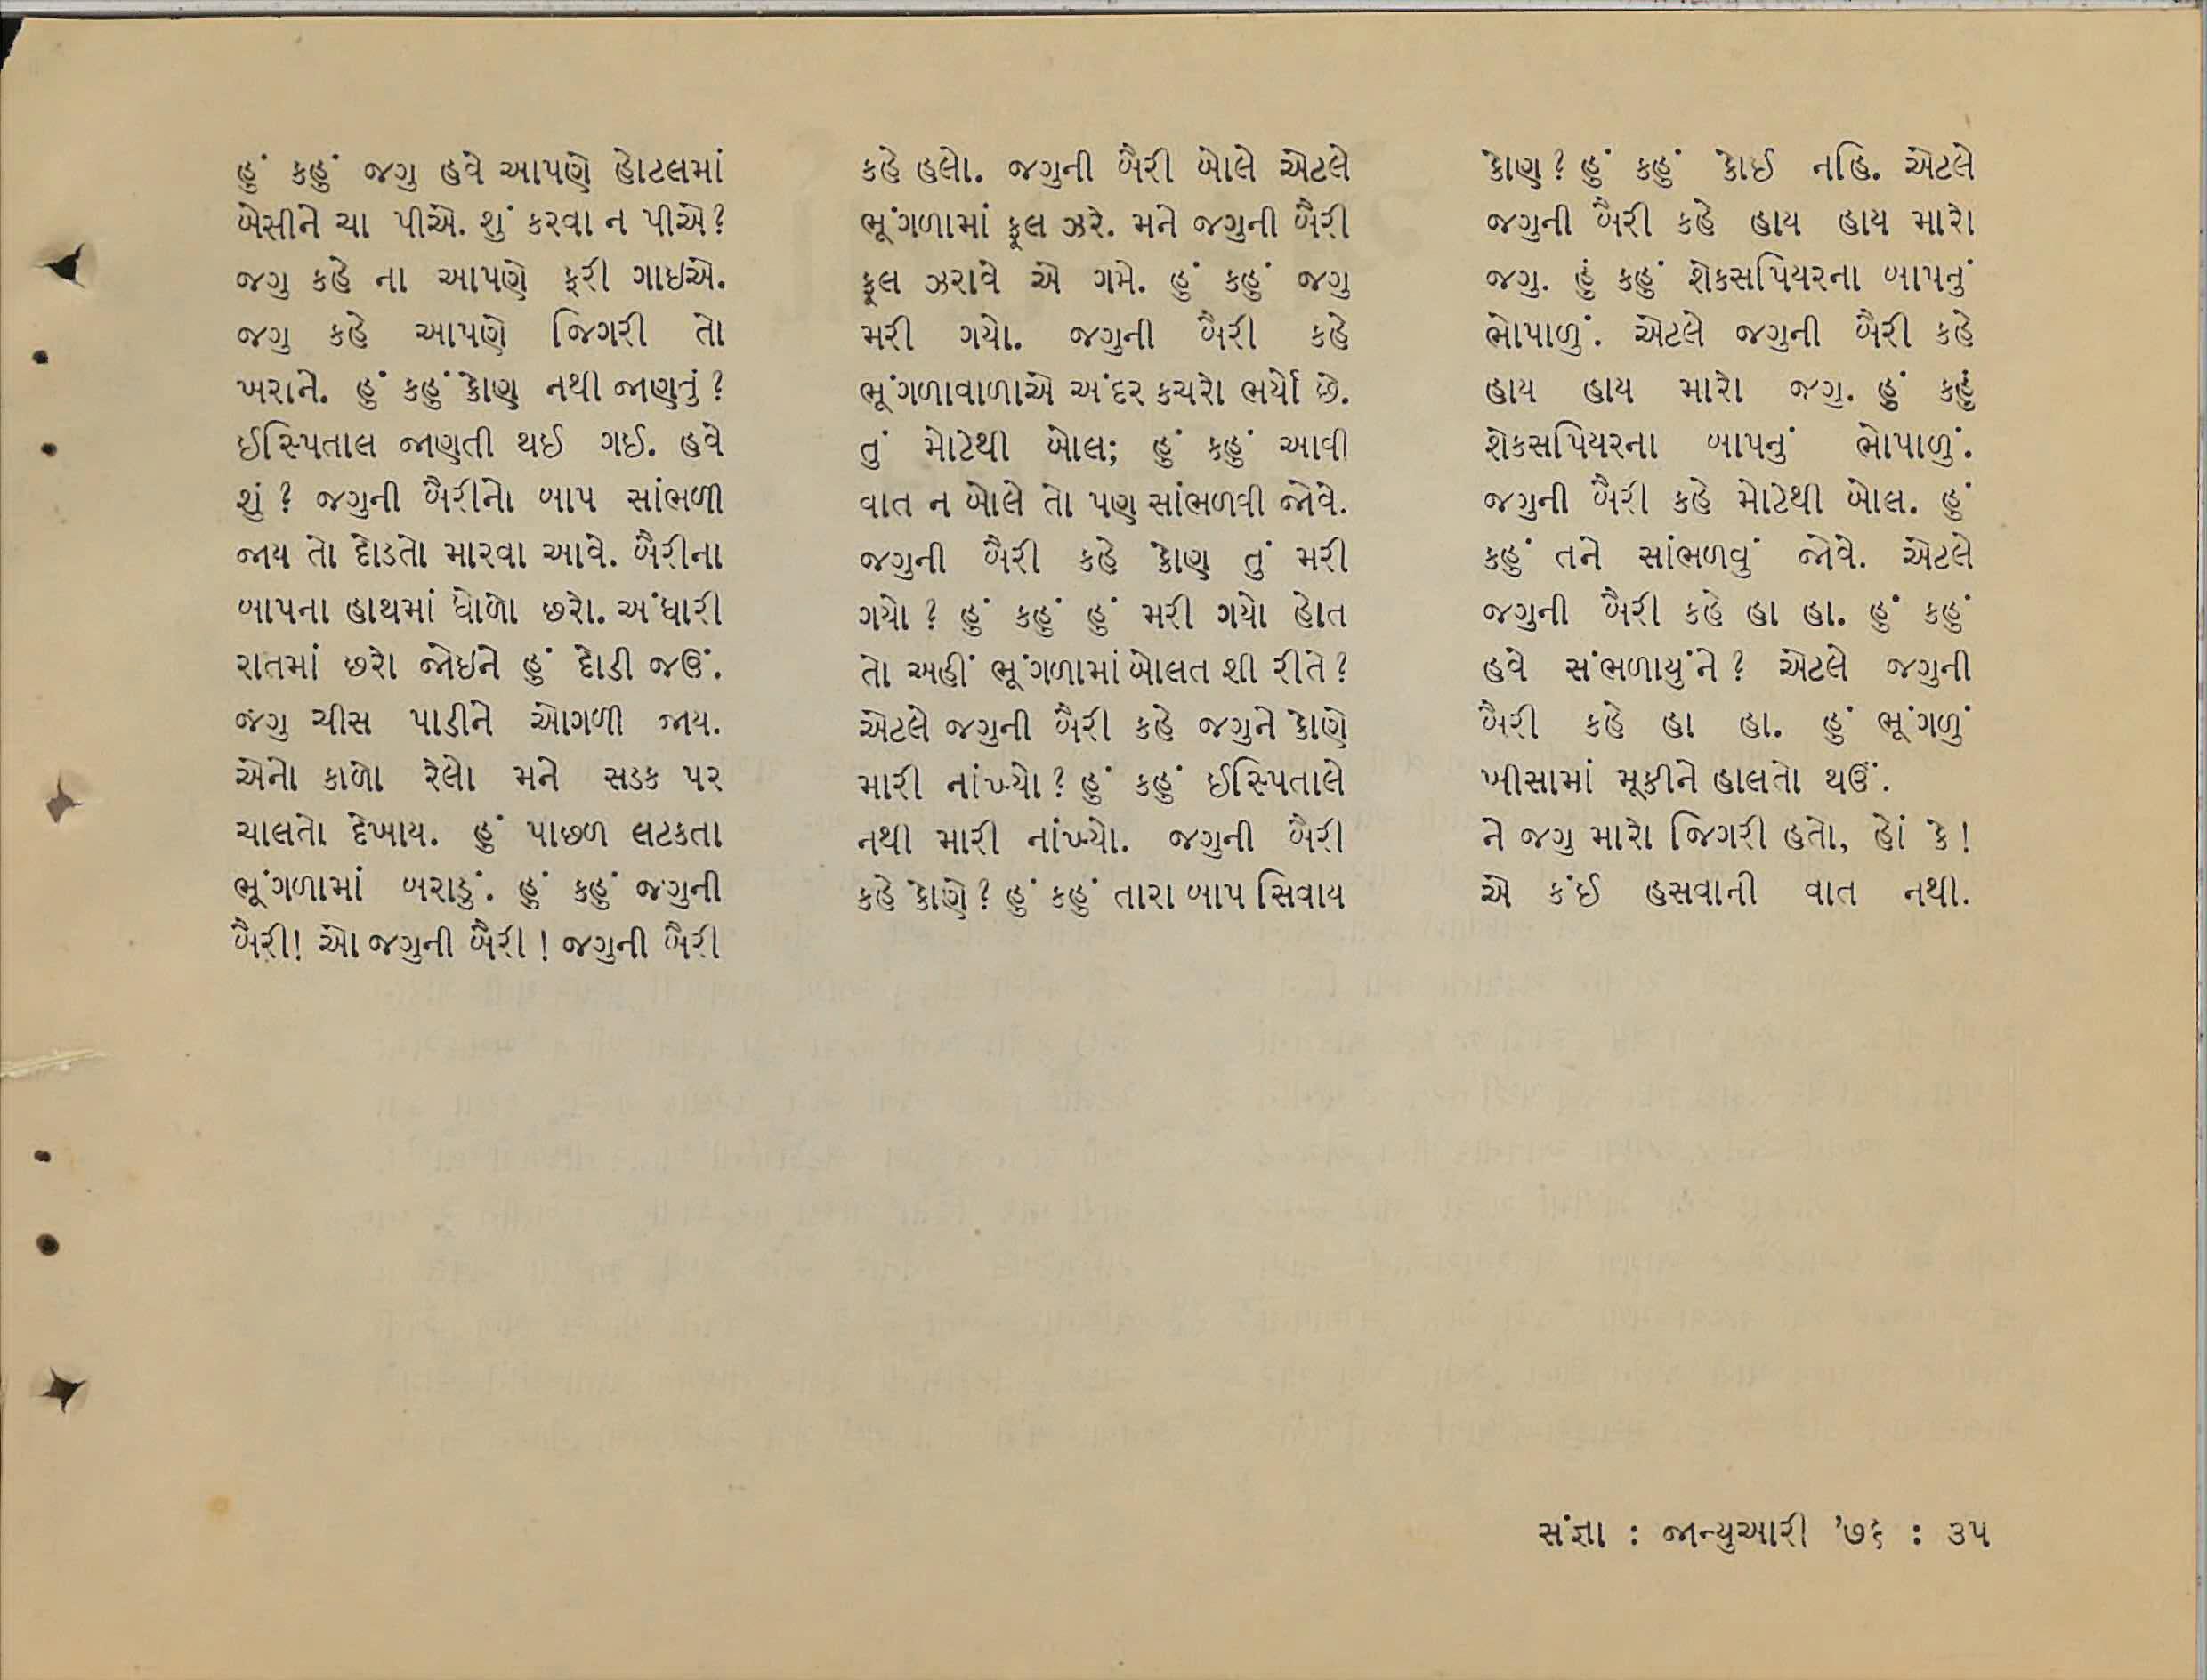 હું કહું જગુ હવે આપણે હોટલમાં
બેસીને ચા પીએ. શું કરવા ન પીએ?
જગુ કહે ના આપણે ફરી ગાઇએ.
જગુ કહે આપણે જિગરી તો
ખરાને. હું કહું કોણ નથી જાણતું?
ઈસ્પિતાલ જાણતી થઈ ગઈ. હવે
શું? જગુની બૈરીનો બાપ સાંભળી
જાય તો દોડતો મારવા આવે. બૈરીના
બાપના હાથમાં ધોળો છરો. અંધારી
રાતમાં છરો જોઇને હું દોડી જઉં.
જગુ ચીસ પાડીને ઓગળી જાય.
એનો કાળો રેલો મને સડક પર
ચાલતો દેખાય. હું પાછળ લટકતા
ભૂંગળામાં બરાડું. હું કહું જગુની
બૈરી! ઓ જગુની બૈરી! જગુની બૈરી
કહે હલો. જગુની બૈરી બોલે એટલે
ભૂંગળામાં ફૂલ ઝરે. મને જગુની બૈરી
ફૂલ ઝરાવે એ ગમે. હું કહું જગુ
મરી ગયો. જગુની બૈરી કહે
ભૂંગળાવાળાએ અંદર કચરો ભર્યો છે.
તું મોટેથી બોલ; હું કહું આવી
વાત ન બોલે તો પણ સાંભળવી જોવે.
જગુની બૈરી કહે કોણ તું મરી
ગયો? હું કહું હું મરી ગયો હોત
તો અહીં ભૂંગળામાં બોલત શી રીતે?
એટલે જગુની બૈરી કહે જગુને કોણે
મારી નાંખ્યો? હું કહું ઈસ્પિતાલે
નથી મારી નાંખ્યો. જગુની બૈરી
કહે કોણે? હું કહું તારા બાપ સિવાય
કોણ? હું કહું કોઈ નહિ. એટલે
જગુની બૈરી કહે હાય હાય મારો
જગુ. હું કહું શેકસપિયરના બાપનું
ભોપાળું. એટલે જગુની બૈરી કહે
હાય હાય મારો જગુ. હું કહું
શેકસપિયરના બાપનું ભોપાળું.
જગુની બૈરી કહે મોટેથી બોલ. હું
કહું તને સાંભળવું જોવે. એટલે
જગુની બૈરી કહે હા હા. હું કહું
હવે સંભળાયુંને? એટલે જગુની
બૈરી કહે હા હા. હું ભૂંગળું
ખીસામાં મૂકીને હાલતો થઉં.
ને જગુ મારો જિગરી હતો, હોં કે!
એ કંઈ હસવાની વાત નથી.
સંજ્ઞા : જાન્યુઆરી '૭૬ : ૩૫